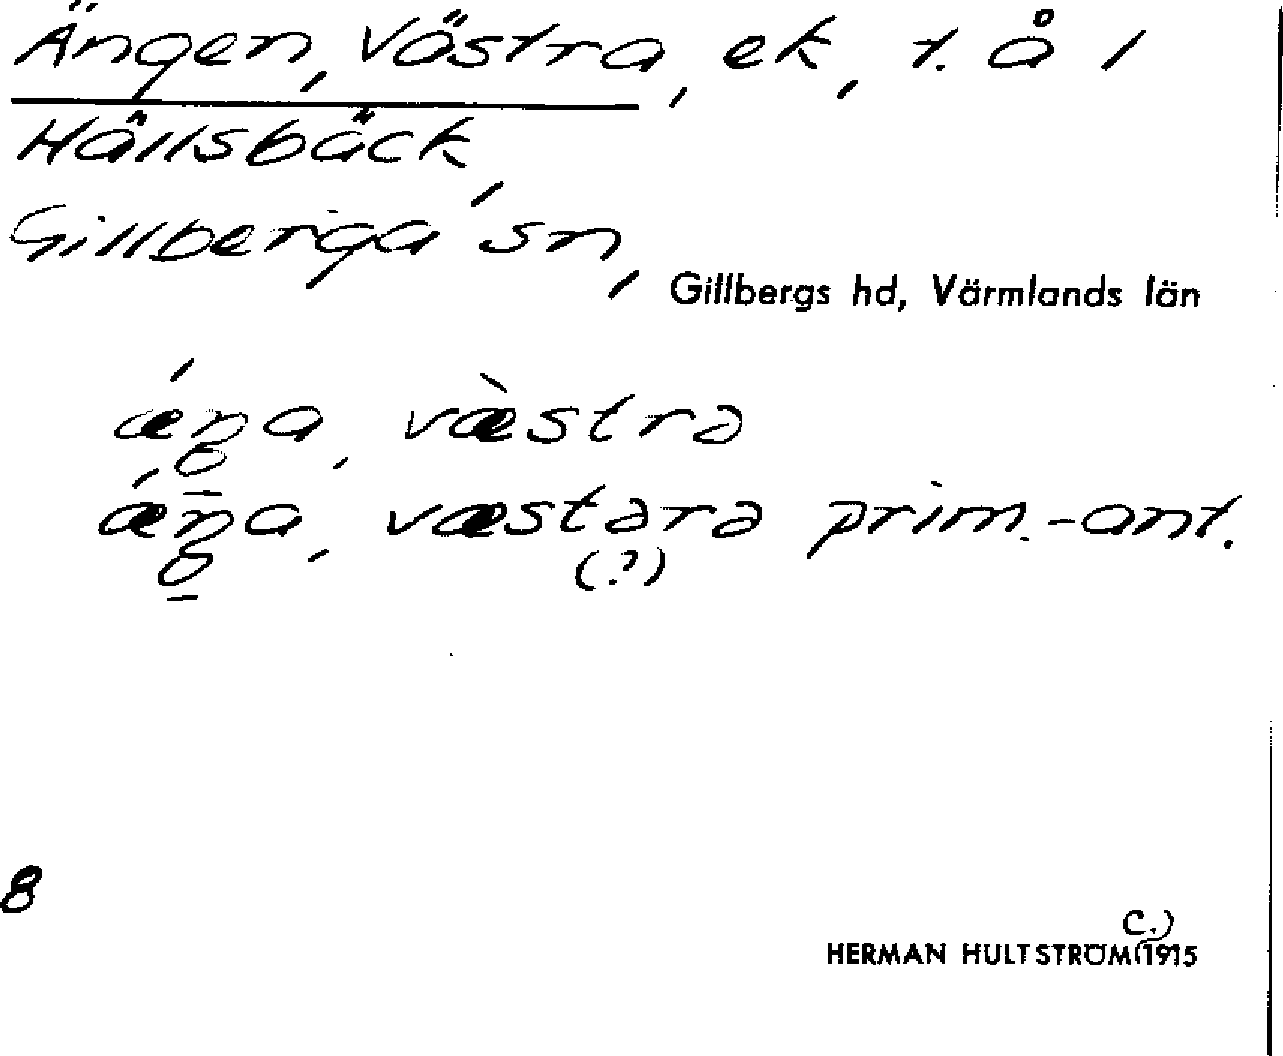 Ängen, Västra, ek, t. å 1
Hällsbäck,
Gillberga sn,
Gillbergs hd, Värmlands län
ǽŋa, væ̀strə
ǽŋa, væstərə prim.-ant.
(?)
8
C.)
HERMAN HULTSTRÖM (1915